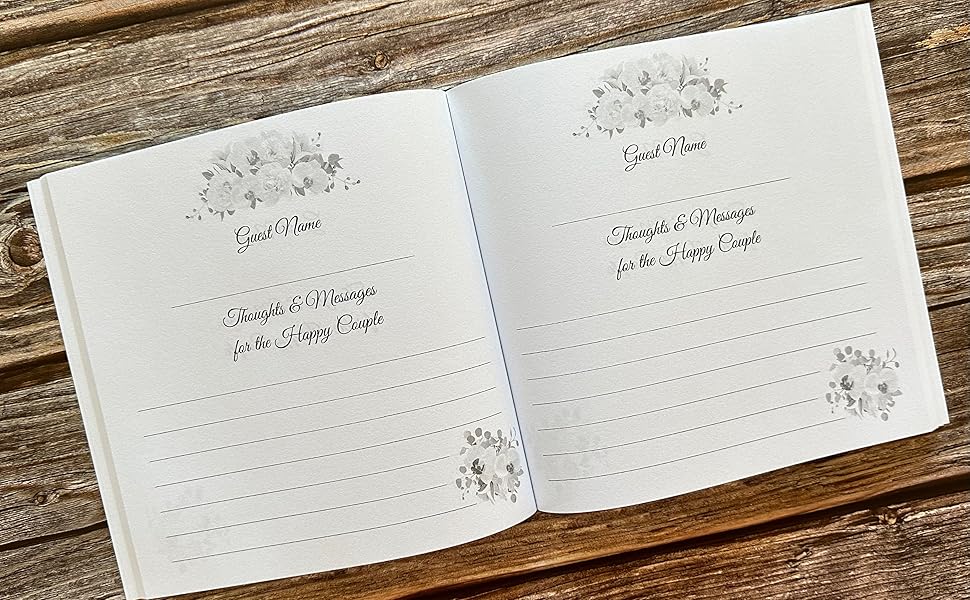 Guest Name
Thoughts & Messages
for the Happy Couple
Guest Name
Thoughts & Messages
for the Happy Couple